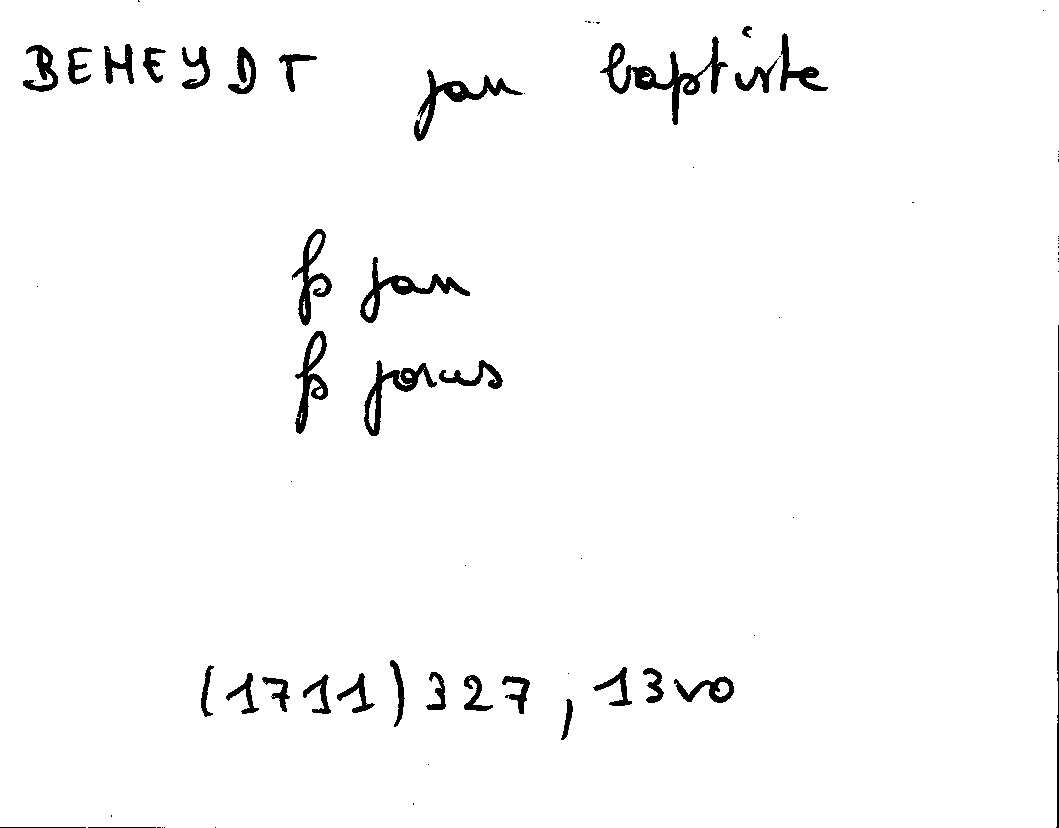 BEHEYDT jan baptiste
fs jan
fs joris
(1711) 327, 13vo